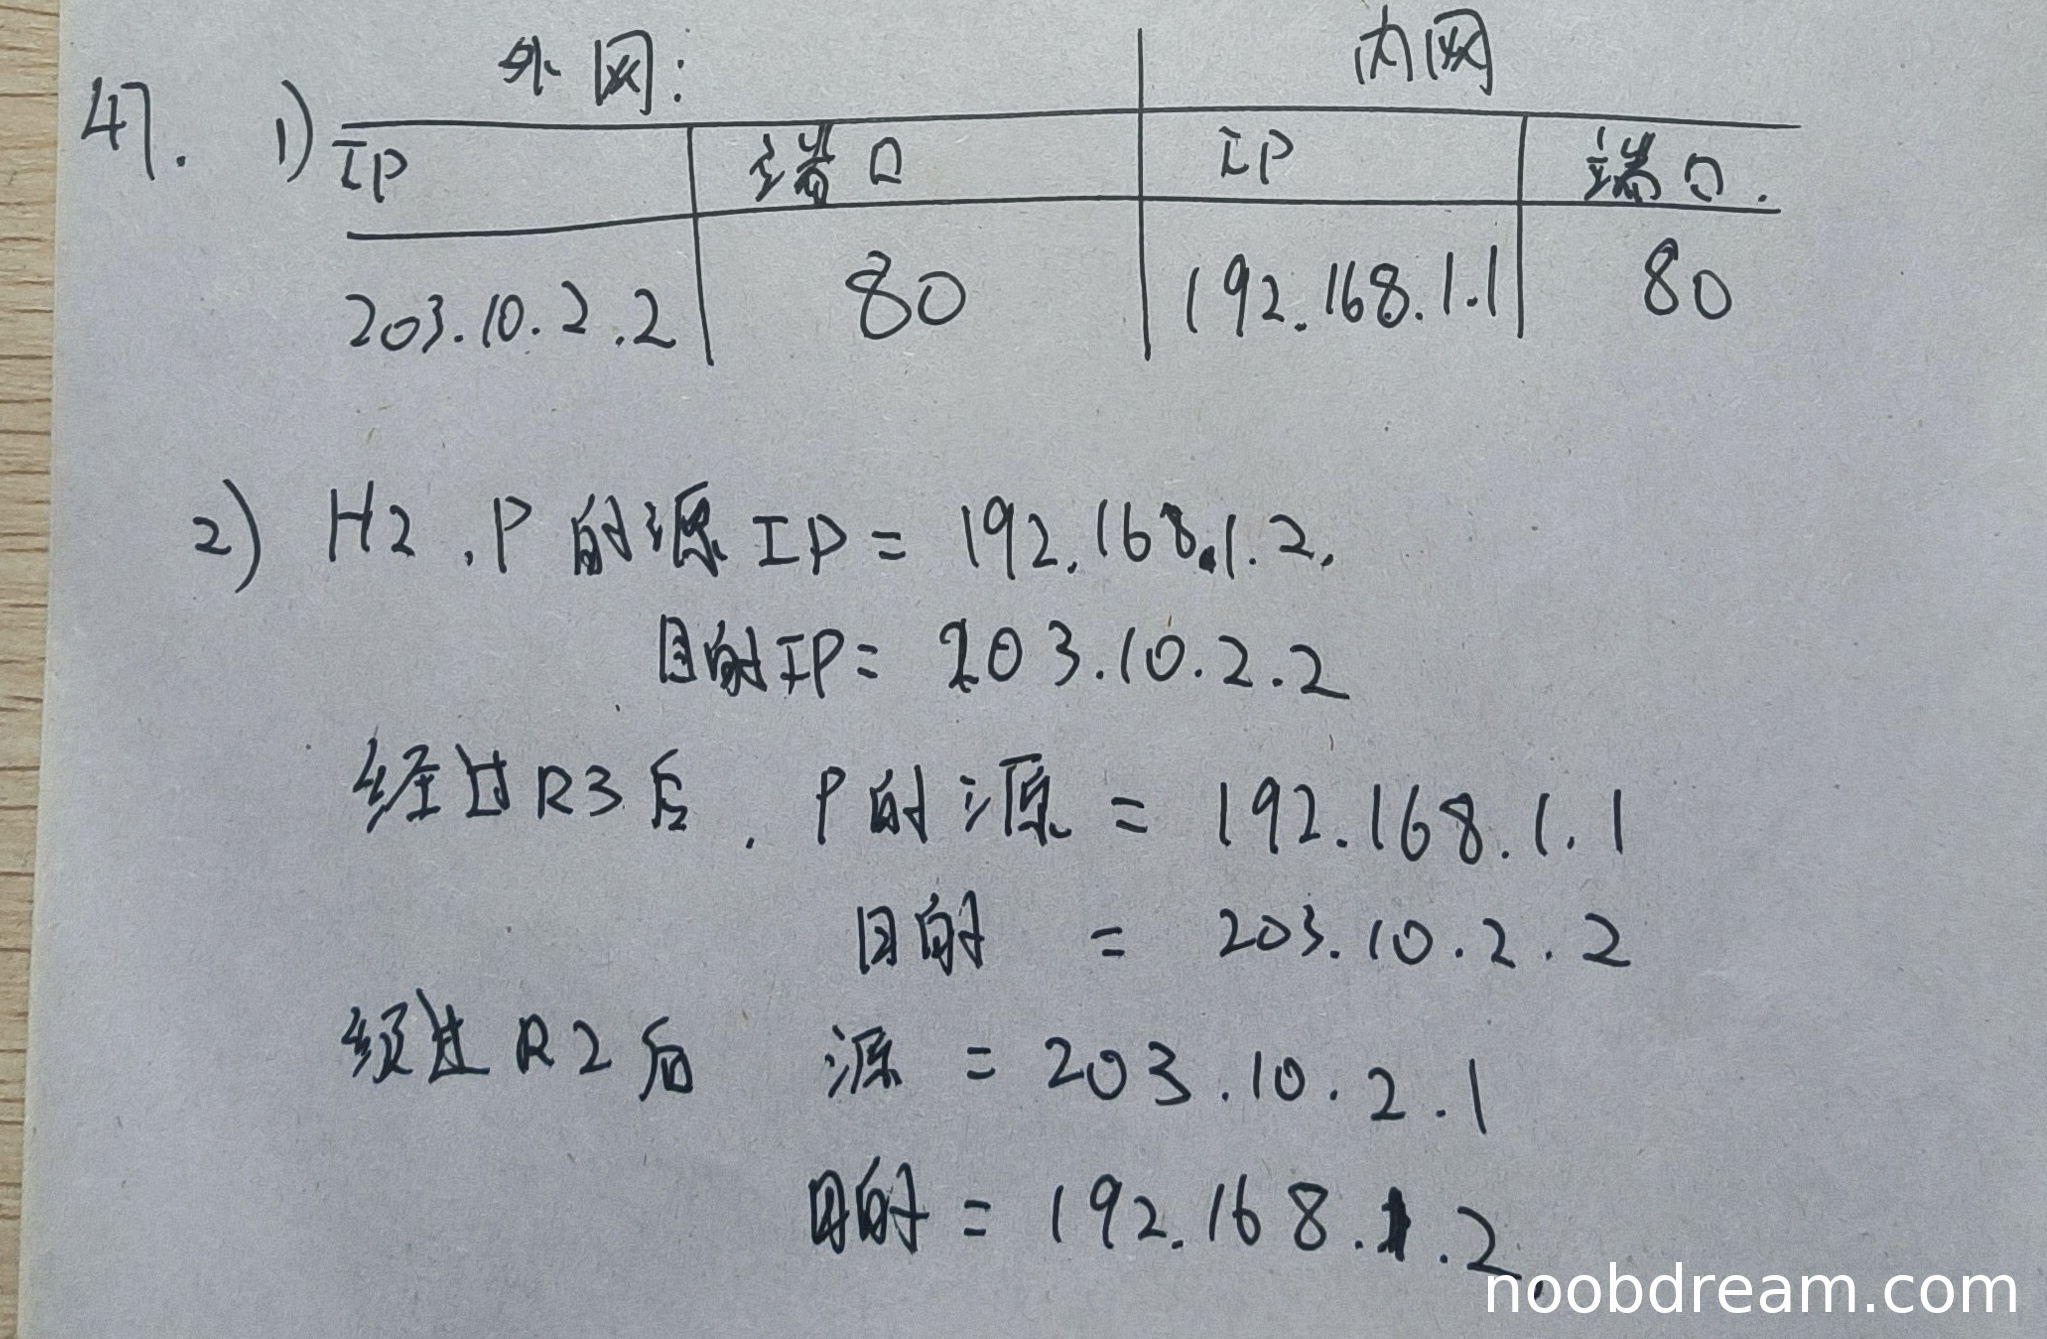 外网: 内网
47. 1) IP 端口 IP 端口.
203.10.2.2 80 192.168.1.1 80
2) H2 . P的源IP = 192.168.1.2.
目的IP = 203.10.2.2
经过R3后 . P的源 = 192.168.1.1
目的 = 203.10.2.2
经过R2后 源 = 203.10.2.1
目的 = 192.168.1.2.
noobdream.com